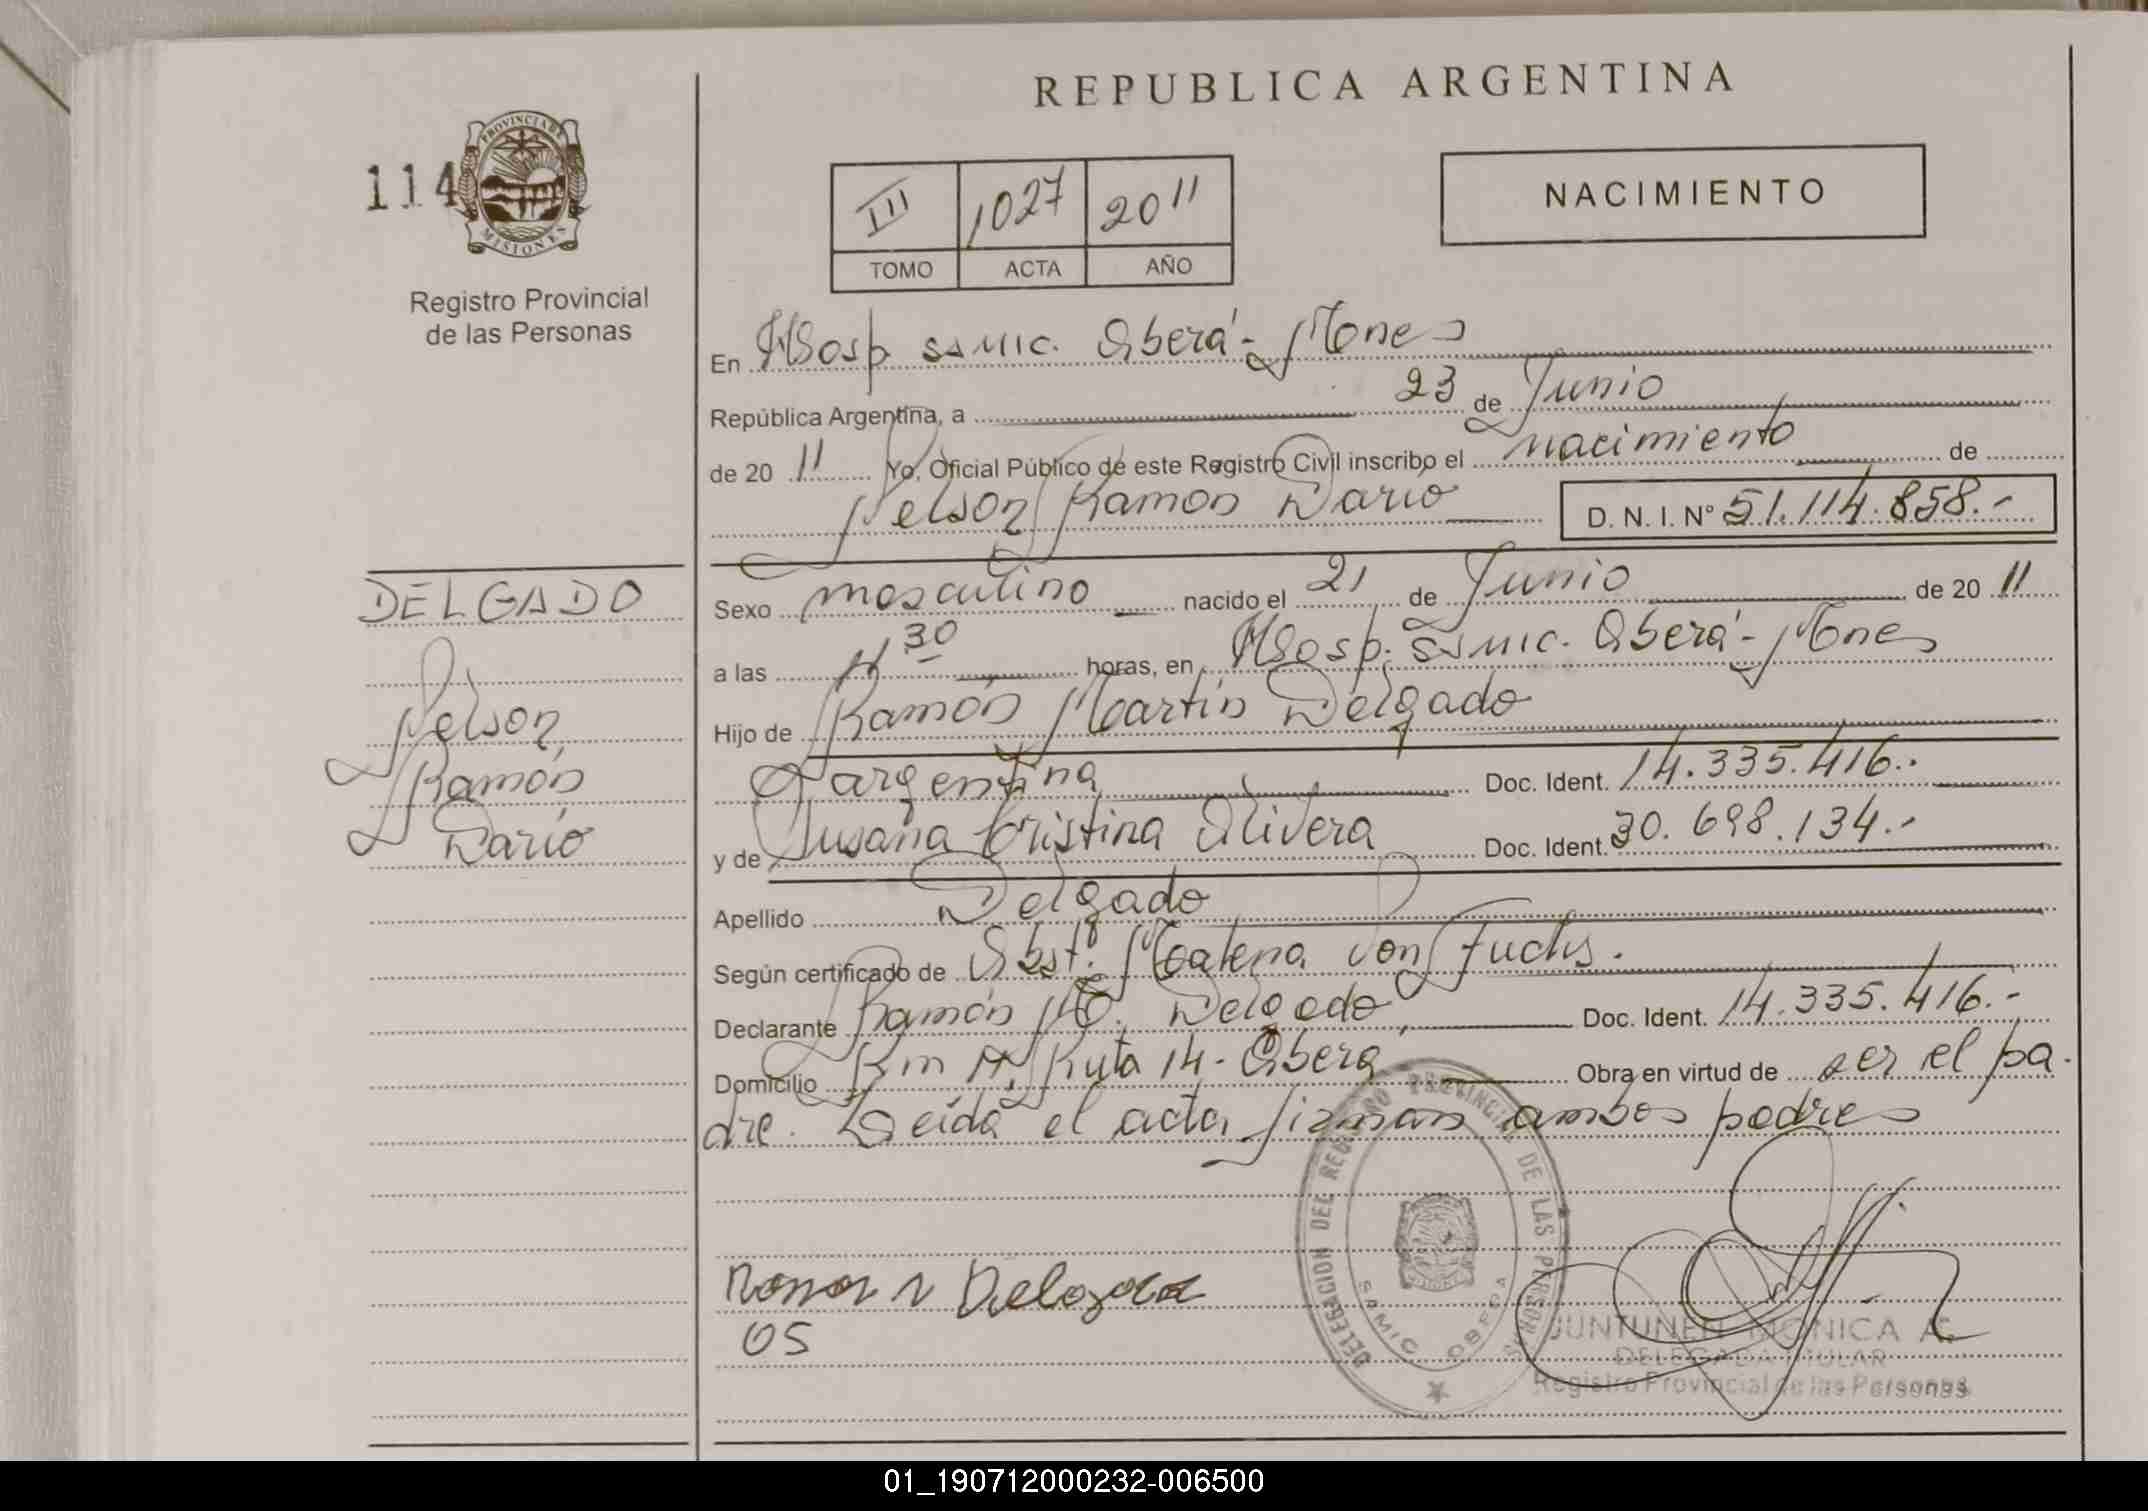 REPUBLICA ARGENTINA
114
PROVINCIA DE
MISIONES
Registro Provincial
de las Personas
III 1027 2011
TOMO ACTA AÑO
NACIMIENTO
En Hosp SAMIC. Oberá - Mones
República Argentina, a 23 de Junio
de 20 11 Yo, Oficial Público de este Registro Civil inscribo el nacimiento de
Nelson Ramón Darío D. N. I. N° 51.114.858.-
DELGADO
Nelson
Ramón
Darío
Sexo masculino nacido el 21 de Junio de 20 11
a las 11 30 horas, en Hosp. SAMIC. Oberá - Mones
Hijo de Ramón Martín Delgado
argentina Doc. Ident. 14.335.416.-
y de Susana Cristina Olivera Doc. Ident. 30.698.134.-
Apellido Delgado
Según certificado de Obst. Malena von Fuchs.
Declarante Ramón M. Delgado, Doc. Ident. 14.335.416.-
Domicilio Km Ruta 14 - Oberá Obra en virtud de ser el pa-
dre. Leída el acta firman ambos padres
DELEGACION DEL REGISTRO PROVINCIAL DE LAS PERSONAS
SAMIC OBERA
Delgado
OS
JUNTUNEN MONICA A.
DELEGADA TITULAR
Registro Provincial de las Personas
01_190712000232-006500